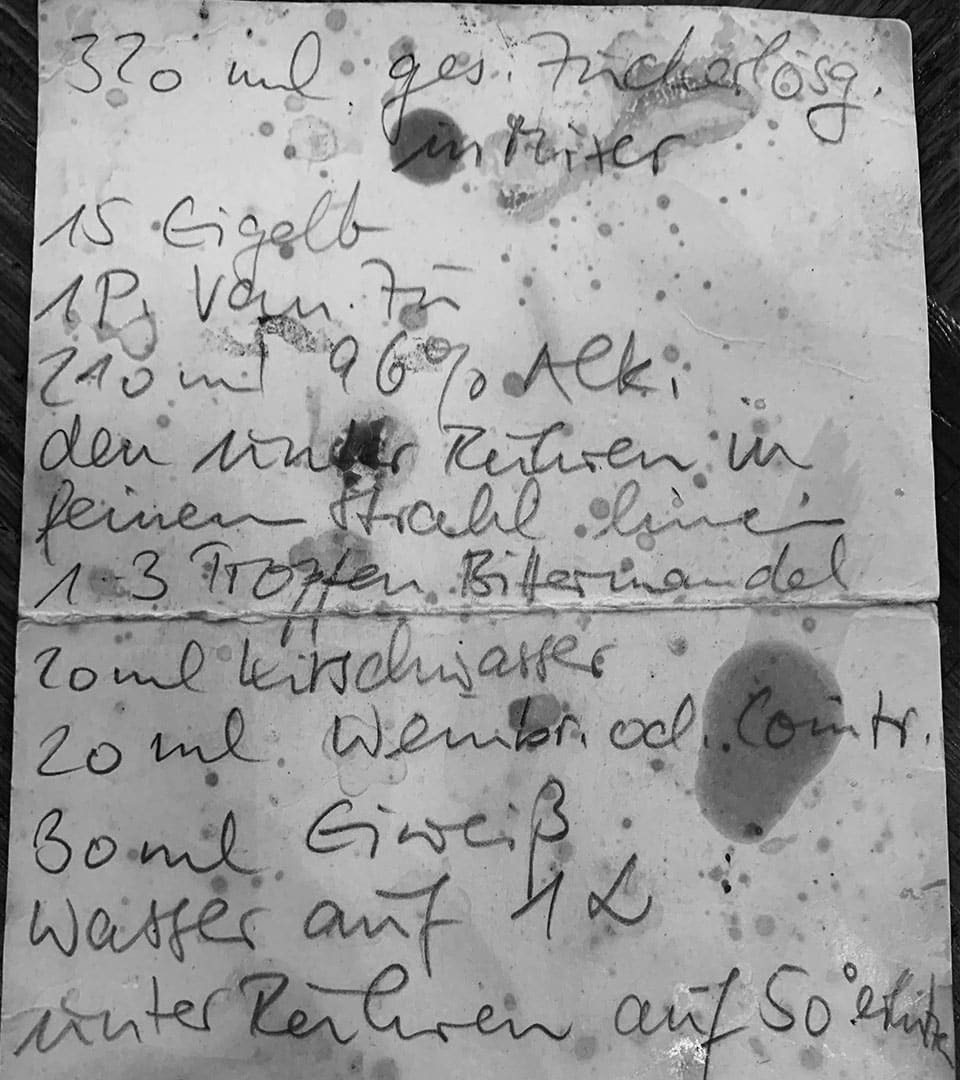 320 ml ges. Zuckerlösg.
in Mixer
15 Eigelb
1 P. Van. Zu
210 ml 96% Alk.
den unter Rühren in
feinen Strahl hinein
1-3 Tropfen Bittermandel
20 ml Kirschwasser
20 ml Weinbr. od. Cointr.
30 ml Eiweiß
Wasser auf 1 L
unter Rühren auf 50° erhitze